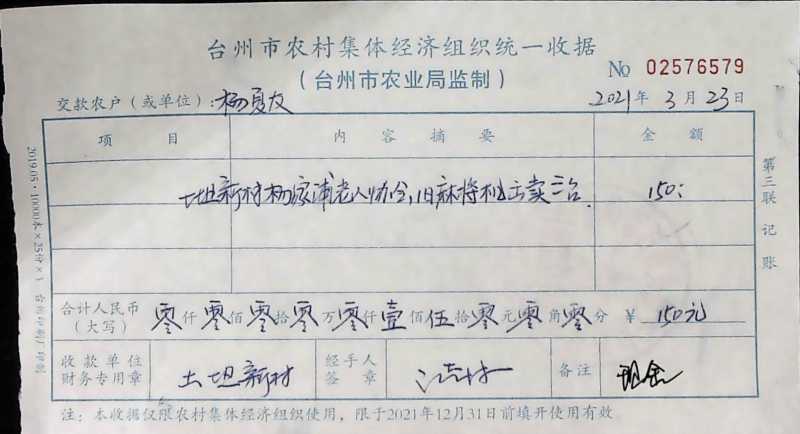 台州市农村集体经济组织统一收据
(台州市农业局监制)
No 02576579
交款农户(或单位):杨夏友
2021年 3月 23日
项 目 内 容 摘 要 金 额
土坦新村杨家浦老人协会,旧麻将机出卖三台. 150:
合计人民币(大写) 零仟零佰零拾零万零仟壹佰伍拾零元零角零分 ¥ 150元
收款单位财务专用章 土坦新村 经手人签章 备注 现金
注:本收据仅限农村集体经济组织使用,限于2021年12月31日前填开使用有效。
第三联 记账
2019.05·10000本×25份×1